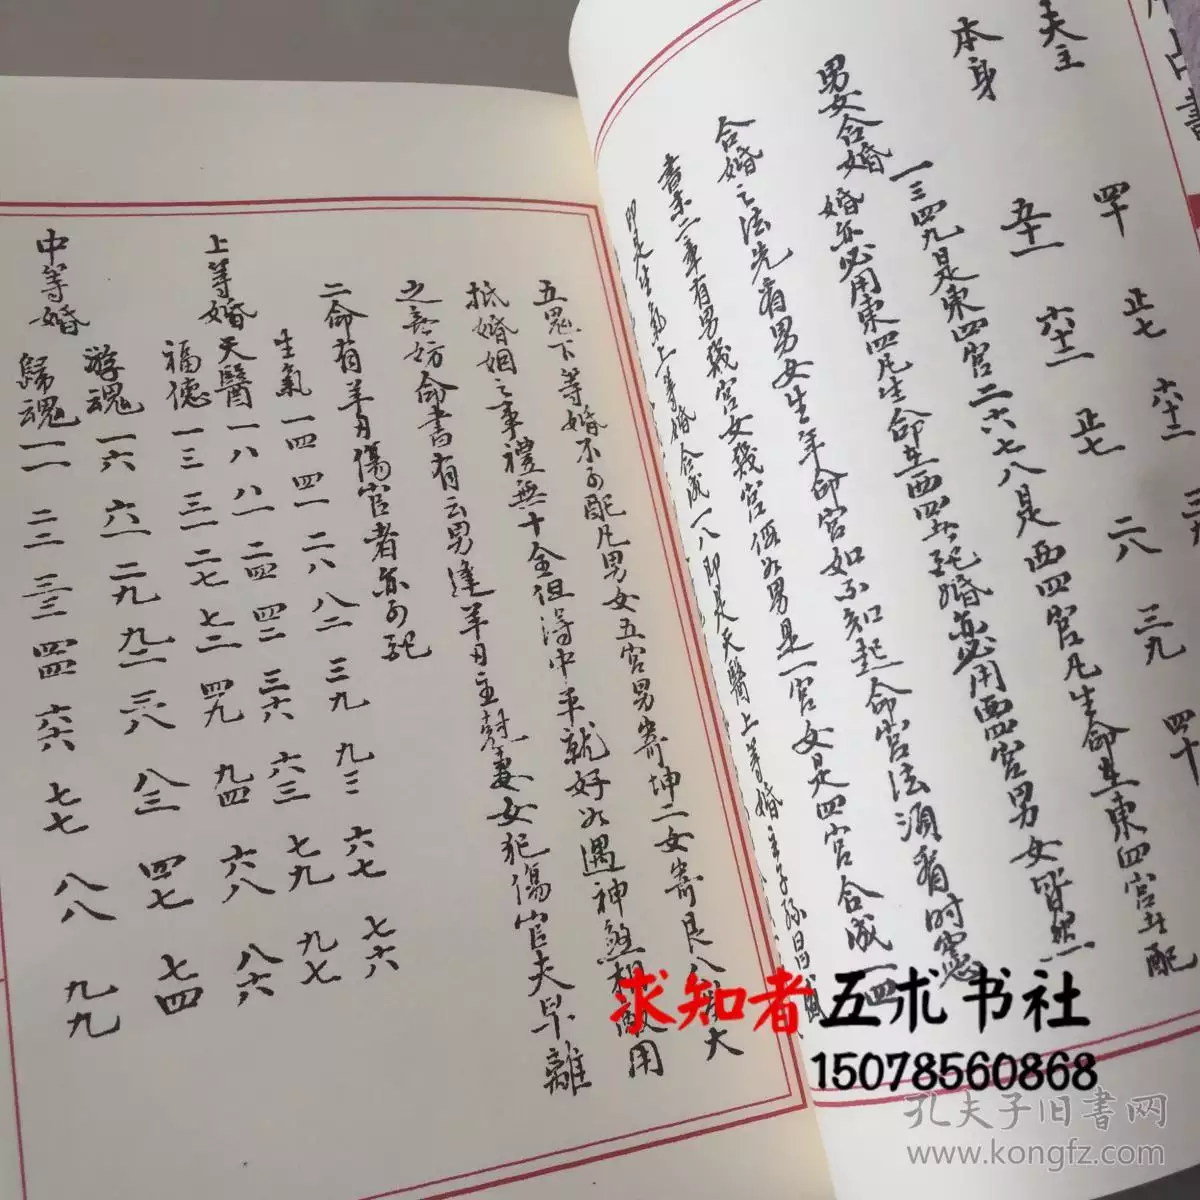 夫主
四十 正七 六十二 三九
本身
五十一 六十二 正七 二八 三九 四十
男女合婚
一三四九是東四宮二六七八是西四宮凡生命在東四宮者配
婚亦必用東四凡生命在西四者配婚亦必用西四宮男女皆然
合婚之法先有男女生年命宮如不知起命宮法須看時憲
書末二章有男幾宮女幾宮假如男是一宮女是四宮合成一四
即是生氣上等婚合成一八即是天醫上等婚主子孫昌盛
五鬼下等婚不可配凡男女五宮男寄坤二女寄艮八
大
抵婚姻之事禮無十全但得中平就好如遇神煞相敵用
之無妨命書有云男逢羊刃主尅妻女犯傷官夫早離
二命有羊刃傷官者亦可配
生氣 一四 四一 二八 八二 三九 九三 六七 七六
上等婚 天醫 一八 八一 二四 四二 三六 六三 七九 九七
福德 一三 三一 二七 七二 四九 九四 六八 八六
中等婚
游魂 一六 六一 二九 九二 三八 八三 四七 七四
歸魂 一一 二二 三三 四四 六六 七七 八八 九九
占書
求知者 五术书社
15078560868
孔夫子旧书网
www.kongfz.com